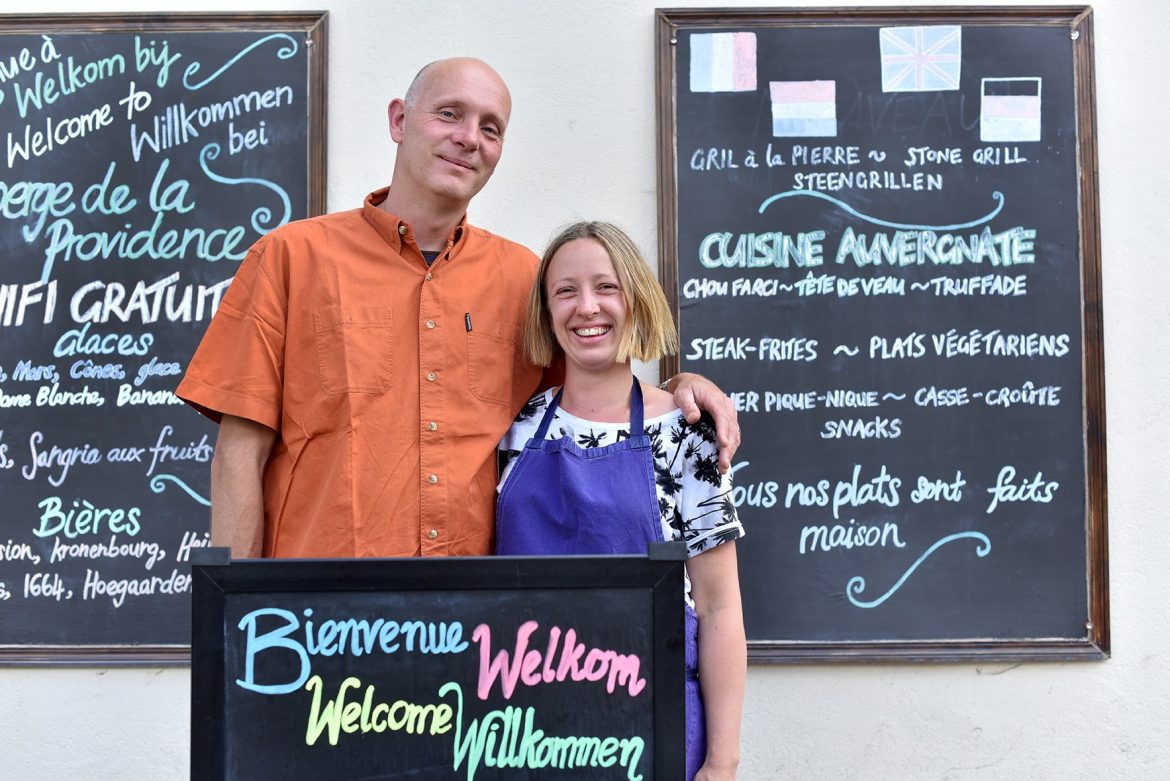 à
Welkom bij
Welcome to
Willkommen
bei
de la
Providence
GRATUIT
Glaces
Mars, Cônes, glace
Blanche,
Sangria aux fruits
Bières
kronenbourg,
1664, Hoegaarden
GRIL à la PIERRE ~ STONE GRILL
STEENGRILLEN
CUISINE AUVERGNATE
CHOU FARCI ~ TÊTE DE VEAU ~ TRUFFADE
STEAK-FRITES ~ PLATS VÉGÉTARIENS
PIQUE-NIQUE ~ CASSE-CROÛTE
SNACKS
nos plats sont faits
maison
Bienvenue Welkom
Welcome Willkommen